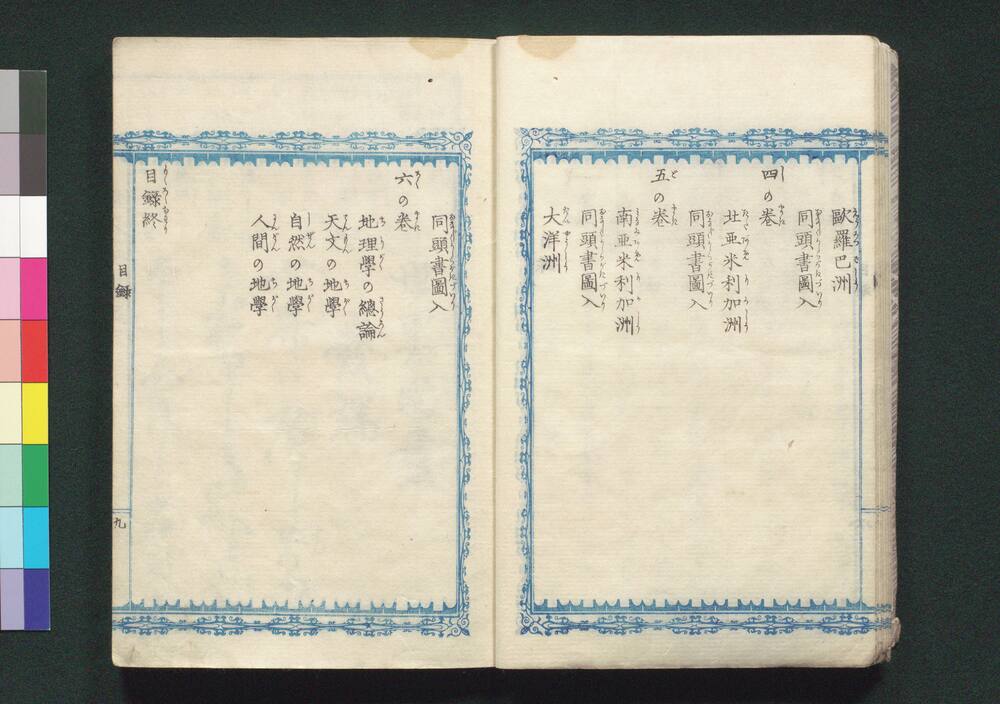 歐羅巴洲
同頭書圖入
四の巻
北亜米利加洲
同頭書圖入
五の巻
南亜米利加洲
同頭書圖入
大洋洲
同頭書圖入
六の巻
地理學の總論
天文の地學
自然の地學
人間の地學
目録終
目録
九